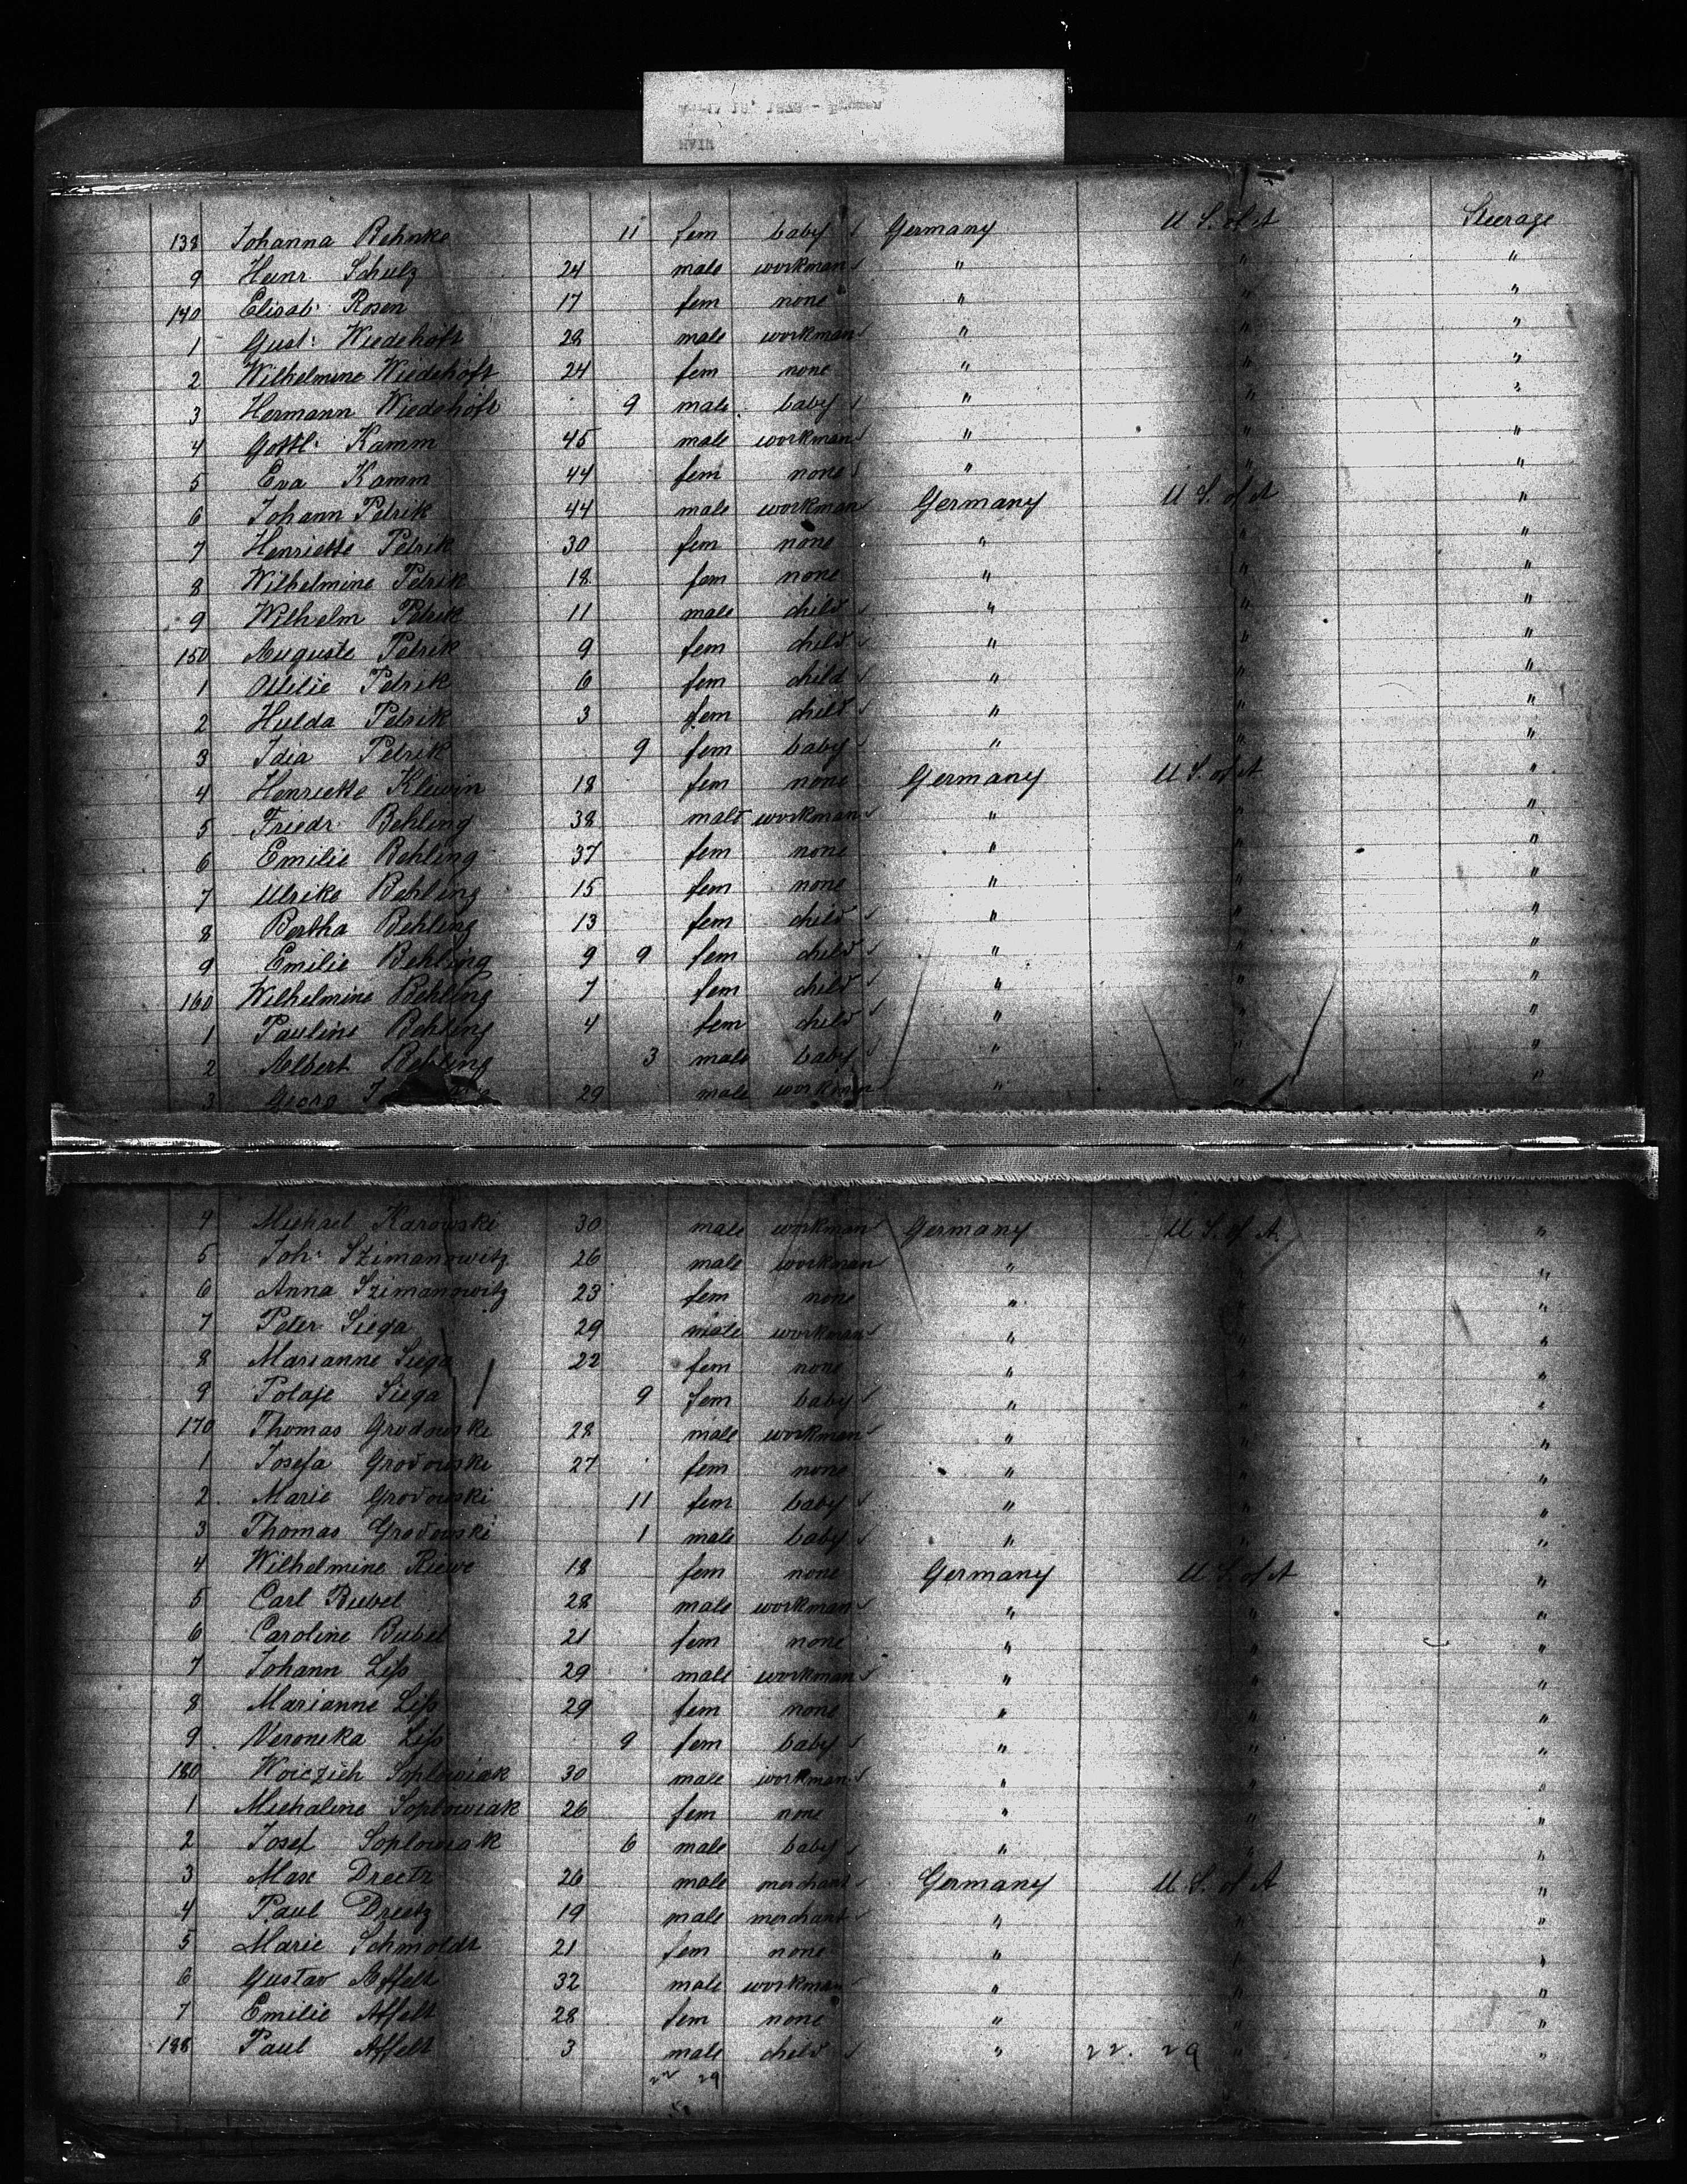 138 Johanna Behnke 11 fem baby Germany U S. of A Steerage
9 Heinr. Schulz 24 male workman " " "
140 Elisab: Rosen 17 fem none " " "
1 Gust: Wiedehöft 28 male workman " " "
2 Wilhelmine Wiedehöft 24 fem none " " "
3 Hermann Wiedehöft 9 male baby " " "
4 Gottl: Kamm 45 male workman " " "
5 Eva Kamm 44 fem none " " "
6 Johann Petrik 44 male workman Germany U S. of A "
7 Henriette Petrik 30 fem none " " "
8 Wilhelmine Petrik 18 fem none " " "
9 Wilhelm Petrik 11 male child " " "
150 Auguste Petrik 9 fem child " " "
1 Ottilie Petrik 6 fem child " " "
2 Hulda Petrik 3 fem child " " "
3 Petrik 9 fem baby " " "
4 Henriette Klewin 18 fem none Germany U S. of A "
5 Friedr. Behling 38 male workman " " "
6 Emilie Behling 37 fem none " " "
7 Ulrike Behling 15 fem none " " "
8 Bertha Behling 13 fem child " " "
9 Emilie Behling 9 9 fem child " " "
160 Wilhelmine Behling 7 fem child " " "
1 Pauline Behling 4 fem child " " "
2 Albert Behling 3 male baby " " "
3 Georg 29 male workman " " "
4 Michael Karowski 30 male workman Germany U S. of A. "
5 Joh: Szimanowitz 26 male workman " " "
6 Anna Szimanowitz 23 fem none " " "
7 Peter Siega 29 male workman " " "
8 Marianne Siega 22 fem none " " "
9 Siega 9 fem baby " " "
170 Thomas Grodowski 28 male workman " " "
1 Josefa Grodowski 27 fem none " " "
2 Marie Grodowski 11 fem baby " " "
3 Thomas Grodowski 1 male baby " " "
4 Wilhelmine Riewe 18 fem none Germany U S. of A "
5 Carl Bubel 28 male workman " " "
6 Caroline Bubel 21 fem none " " "
7 Johann Liss 29 male workman " " "
8 Marianne Liss 29 fem none " " "
9 Veronika Liss 9 fem baby " " "
180 Woiczich Soplowiak 30 male workman " " "
1 Michaline Soplowiak 26 fem none " " "
2 Josef Soplowiak 6 male baby " " "
3 Max Dreetz 26 male merchant Germany U S. of A "
4 Paul Dreetz 19 male merchant " " "
5 Marie Schmoldt 21 fem none " " "
6 Gustav Affelt 32 male workman " " "
7 Emilie Affelt 28 fem none " " "
188 Paul Affelt 3 male child " 22. 29 " "
22 29